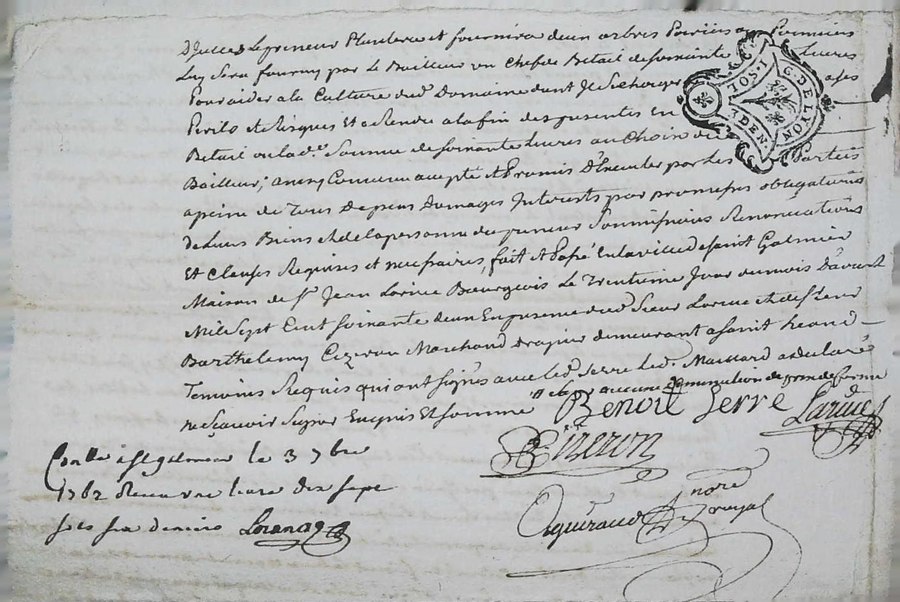 d'Jcelles Le preneur Plantera et fournira deux arbres Poiriers ou Pommiers
Luy Sera fourny par Le Bailleur un Chef de Betail de soixante Livres
Pour aider a la Culture dud. Domaine dont Jl Se charge a ses
Perils et Risques Et a Rendre a la fin des presentes un
Betail ou lad.e Somme de soixante Livres au Choix du
Bailleur; ainsy Convenu accepté et Promis D'Executer par les Parties
a peine de Tous Depens Domages Interests par promesses obligations
de Leurs Biens et de la personne du preneur Soumissions Renonciations
Et Clauses Requises et necessaires, fait et Passé En la ville de Saint Galmier
Maison de Sr. Jean Larüe Bourgeois Le Trentieme Jour du mois D'aoust
Mil Sept Cent soixante deux En presence dud. Sieur Larue et de Sr.
Barthelemy Cizeron Marchand drapier demeurant a Saint heand
Temoins Requis qui ont signés avec led. Serre Led. Massard a declaré
ne sçavoir Signer Enquis Et sommé
aucune
Benoit Serre Larüe
BCizeron
Aguiraud Nore Royal
Con.lle a St galmier le 3 7bre
1762 Receu une livre dix sept
sols six deniers
G. DE LYON